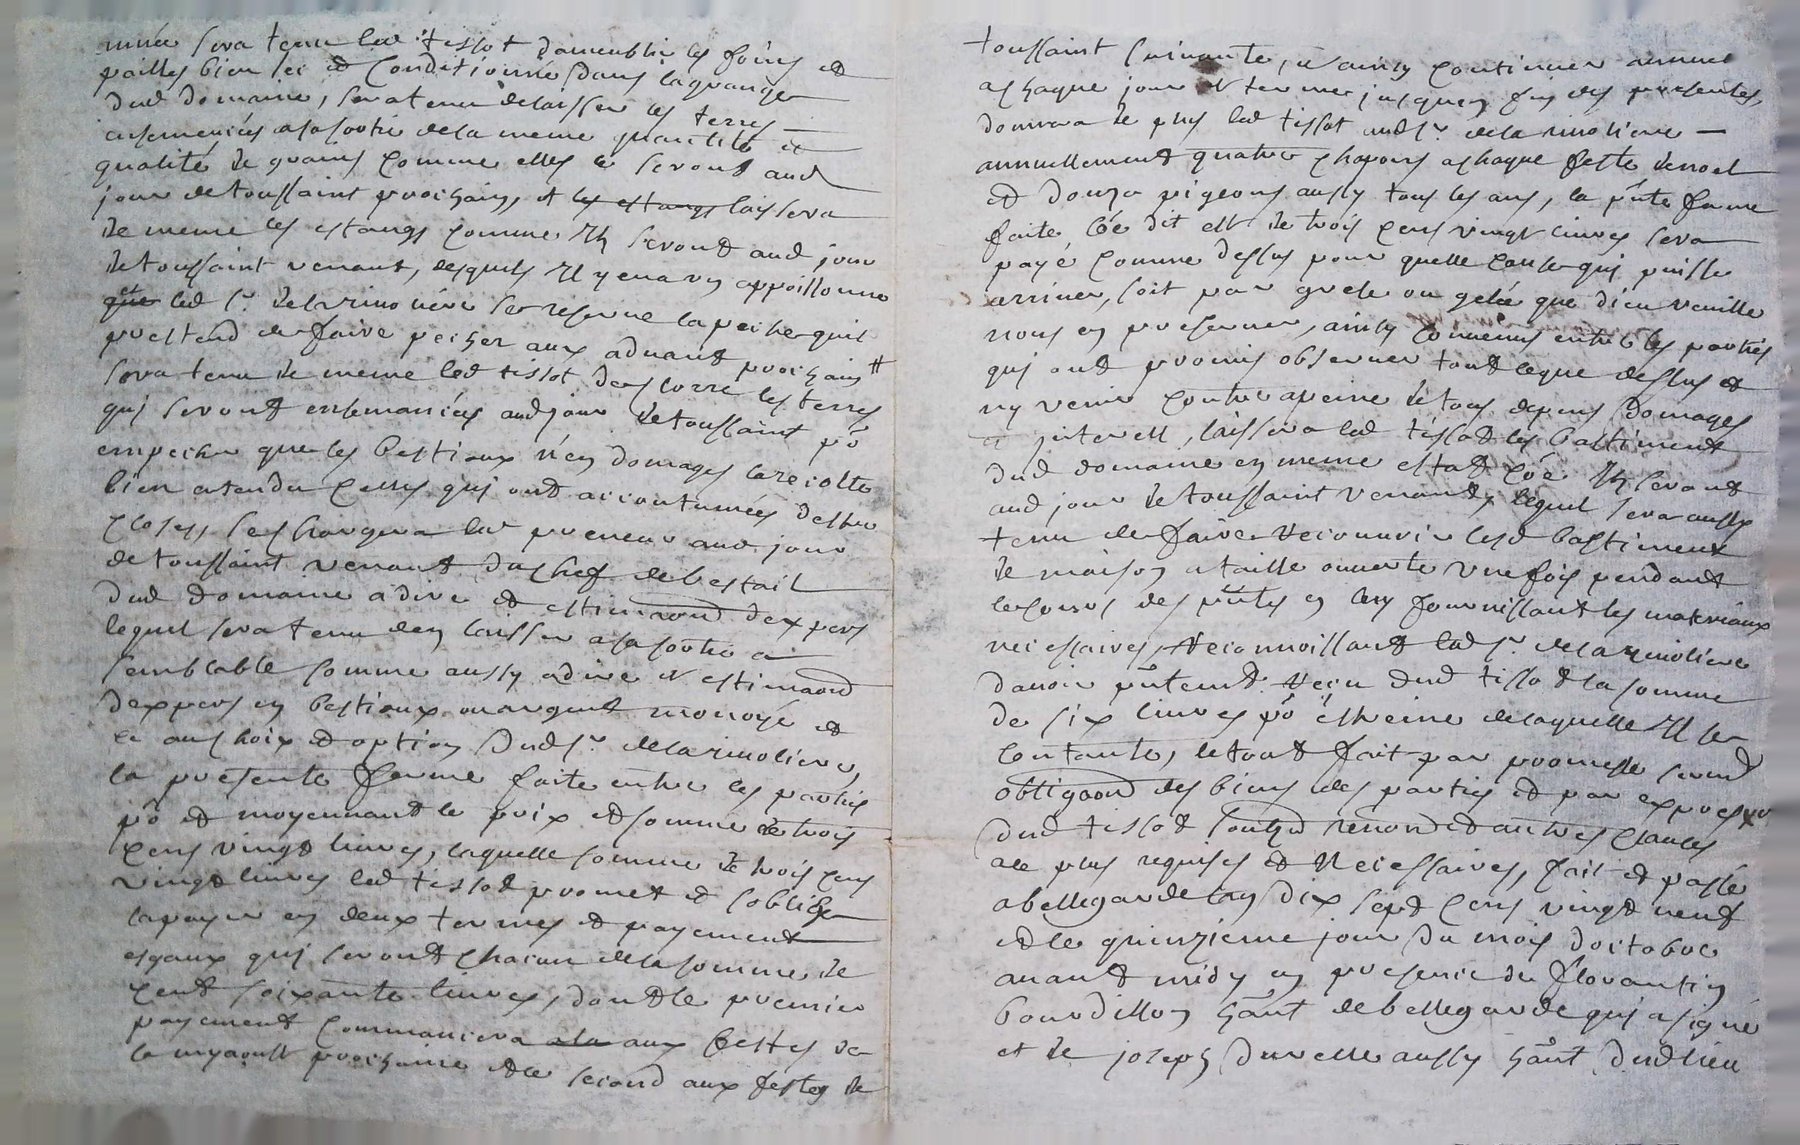 année sera tenu led tissot dameublir les foins et
pailles bien sec et conditionné dans la grange
dud domaine, sera tenu delaisser les terres
ensemencées a sa sortie de la meme quantité et
qualité de grains comme elles se seront aud
jour de toussaint prochain, et les estangs laissera
de meme les estangs comme Ils seront aud jour
de toussaint venant, desquels Il y en a un appoissonné
que led sr. de la rimoliere se reserve la peche quil
pretend de faire pecher aux advant prochain #
sera tenu de meme led tissot desclorre les terres
qui seront ensemancées aud jour de toussaint po
empecher que les bestiaux n'en domages la recolte
bien entendu celles qui ont accoutumées destre
closes, se chargera led preneur aud jour
de toussaint venant du chef de bestail
dud domaine a dire et estimaon dexpers
lequel sera tenu den laisser a sa sortie a
semblable somme aussy a dire et estimaon
dexpers en bestiaux ou argent monoyé et
ce au choix et option dud sr. de la rimoliere,
la presente ferme faite entre les parties
po et moyennant le prix et somme de trois
cens vingt livres, laquelle somme de trois cens
vingt livres led tissot promet et soblige
la payer en deux termes et payement
esgaux qui seront chacun de la somme de
cent soixante livres, dont le premier
payement commancera a la aux festes de
la myaoust prochaine et le second aux festes de
toussaint suivante, et ainsy continuer annuel
a chaque jour et terme jusques en fin des presentes,
donnera de plus led tissot aud sr. de la rimoliere
annuellement quatre chapons a chaque feste de noel
et douze pigeons aussy tous les ans, la pnte ferme
faite coe dit est de trois cens vingt livres sera
payé comme dessus pour quelle cause qui puisse
arriver, soit par grele ou gelée que dieu veuille
nous en preserver, ainsy convenus entre les parties
qui ont promis observer tout ce que dessus et
ny venir contre a peine de tous depens domages
et interest, laissera led tissot les bastiment
dud domaine en meme estat coe Ils seront
aud jour de toussaint venant, lequel sera aussy
tenu de faire recouvrir lesd bastiment
de maison a taille ouverte une fois pendant
le cours des pntes en luy fournissant les materiaux
necessaires, Reconnoissant led sr. de la rimoliere
davoir pntemt. Reçu dud tissot la somme
de six livres po estreine de laquelle Il se
contante, le tout fait par promesse sermt
obligaon des biens des parties et par expres
dud tissot renon et autres clauses
a ce plus requises et Necessaires, fait et passé
a bellegarde lan dix sept cens vingt neuf
et le quinzieme jour du mois doctobre
avant midy en presence de florantin
bourdillon hant de bellegarde qui a signé
et de joseph Durelle aussy hant dud lieu